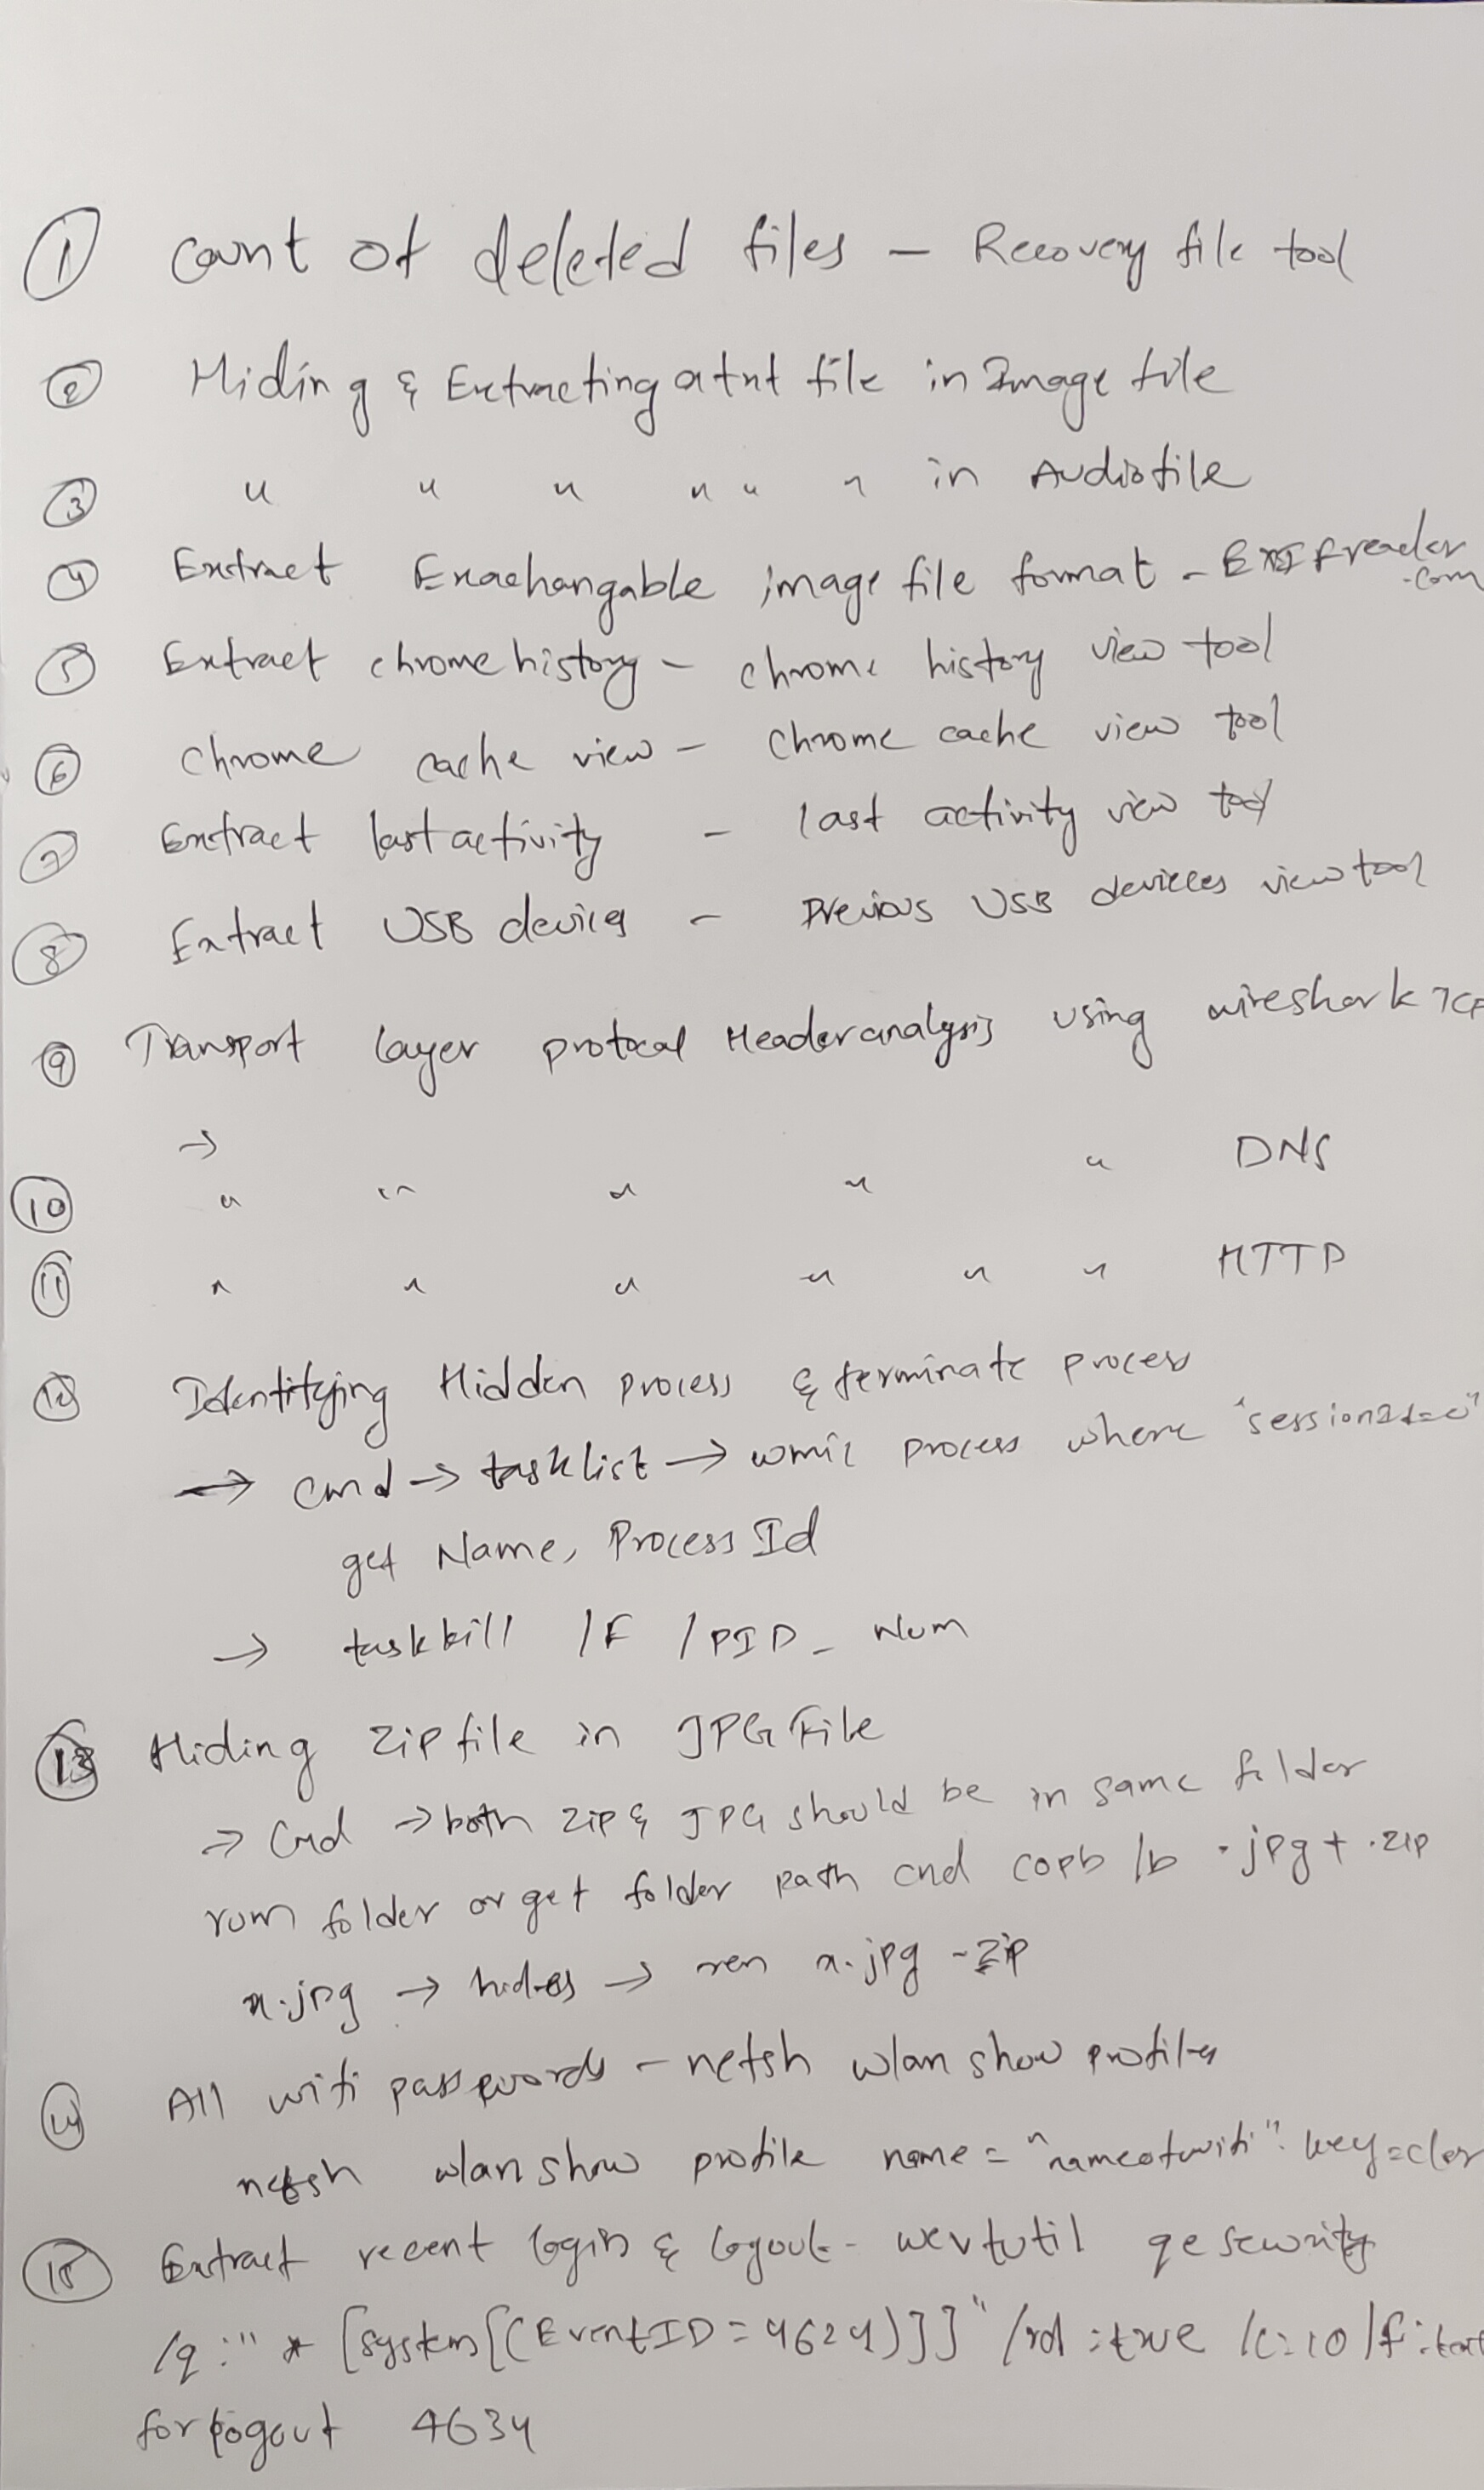 ① Count of deleted files - Recovery file tool
② Hiding & Extracting a txt file in Image file
③ " " " " " " in Audio file
④ Extract Exachangable image file format - EXIF freader.com
⑤ Extract chrome history - chrome history view tool
⑥ Chrome cache view - Chrome cache view tool
⑦ Extract last activity - last activity view tool
⑧ Extract USB devices - Previous USB devicces view tool
⑨ Transport layer protocal Header analysis using wireshark TCP
→
⑩ " " " " " DNS
⑪ " " " " " " HTTP
⑫ Identifying Hidden process & terminate process
→ cmd → tasklist → wmic process where "sessionId=0"
get Name, Process Id
→ taskkill /F /PID_ Num
⑬ Hiding zip file in JPG File
→ Cmd → both zip & JPG should be in same folder
folder or get folder path cmd /b .jpg + .zip
x.jpg → hides → ren x.jpg -zip
⑭ All wifi passwords - netsh wlan show profiles
netsh wlan show profile name = "nameofwifi" key=clear
⑮ Extract recent login & logout - wevtutil qe security
/q:"* [system[(EventID=4624)]]" /rd:true /c:10 /f:text
for logout 4634